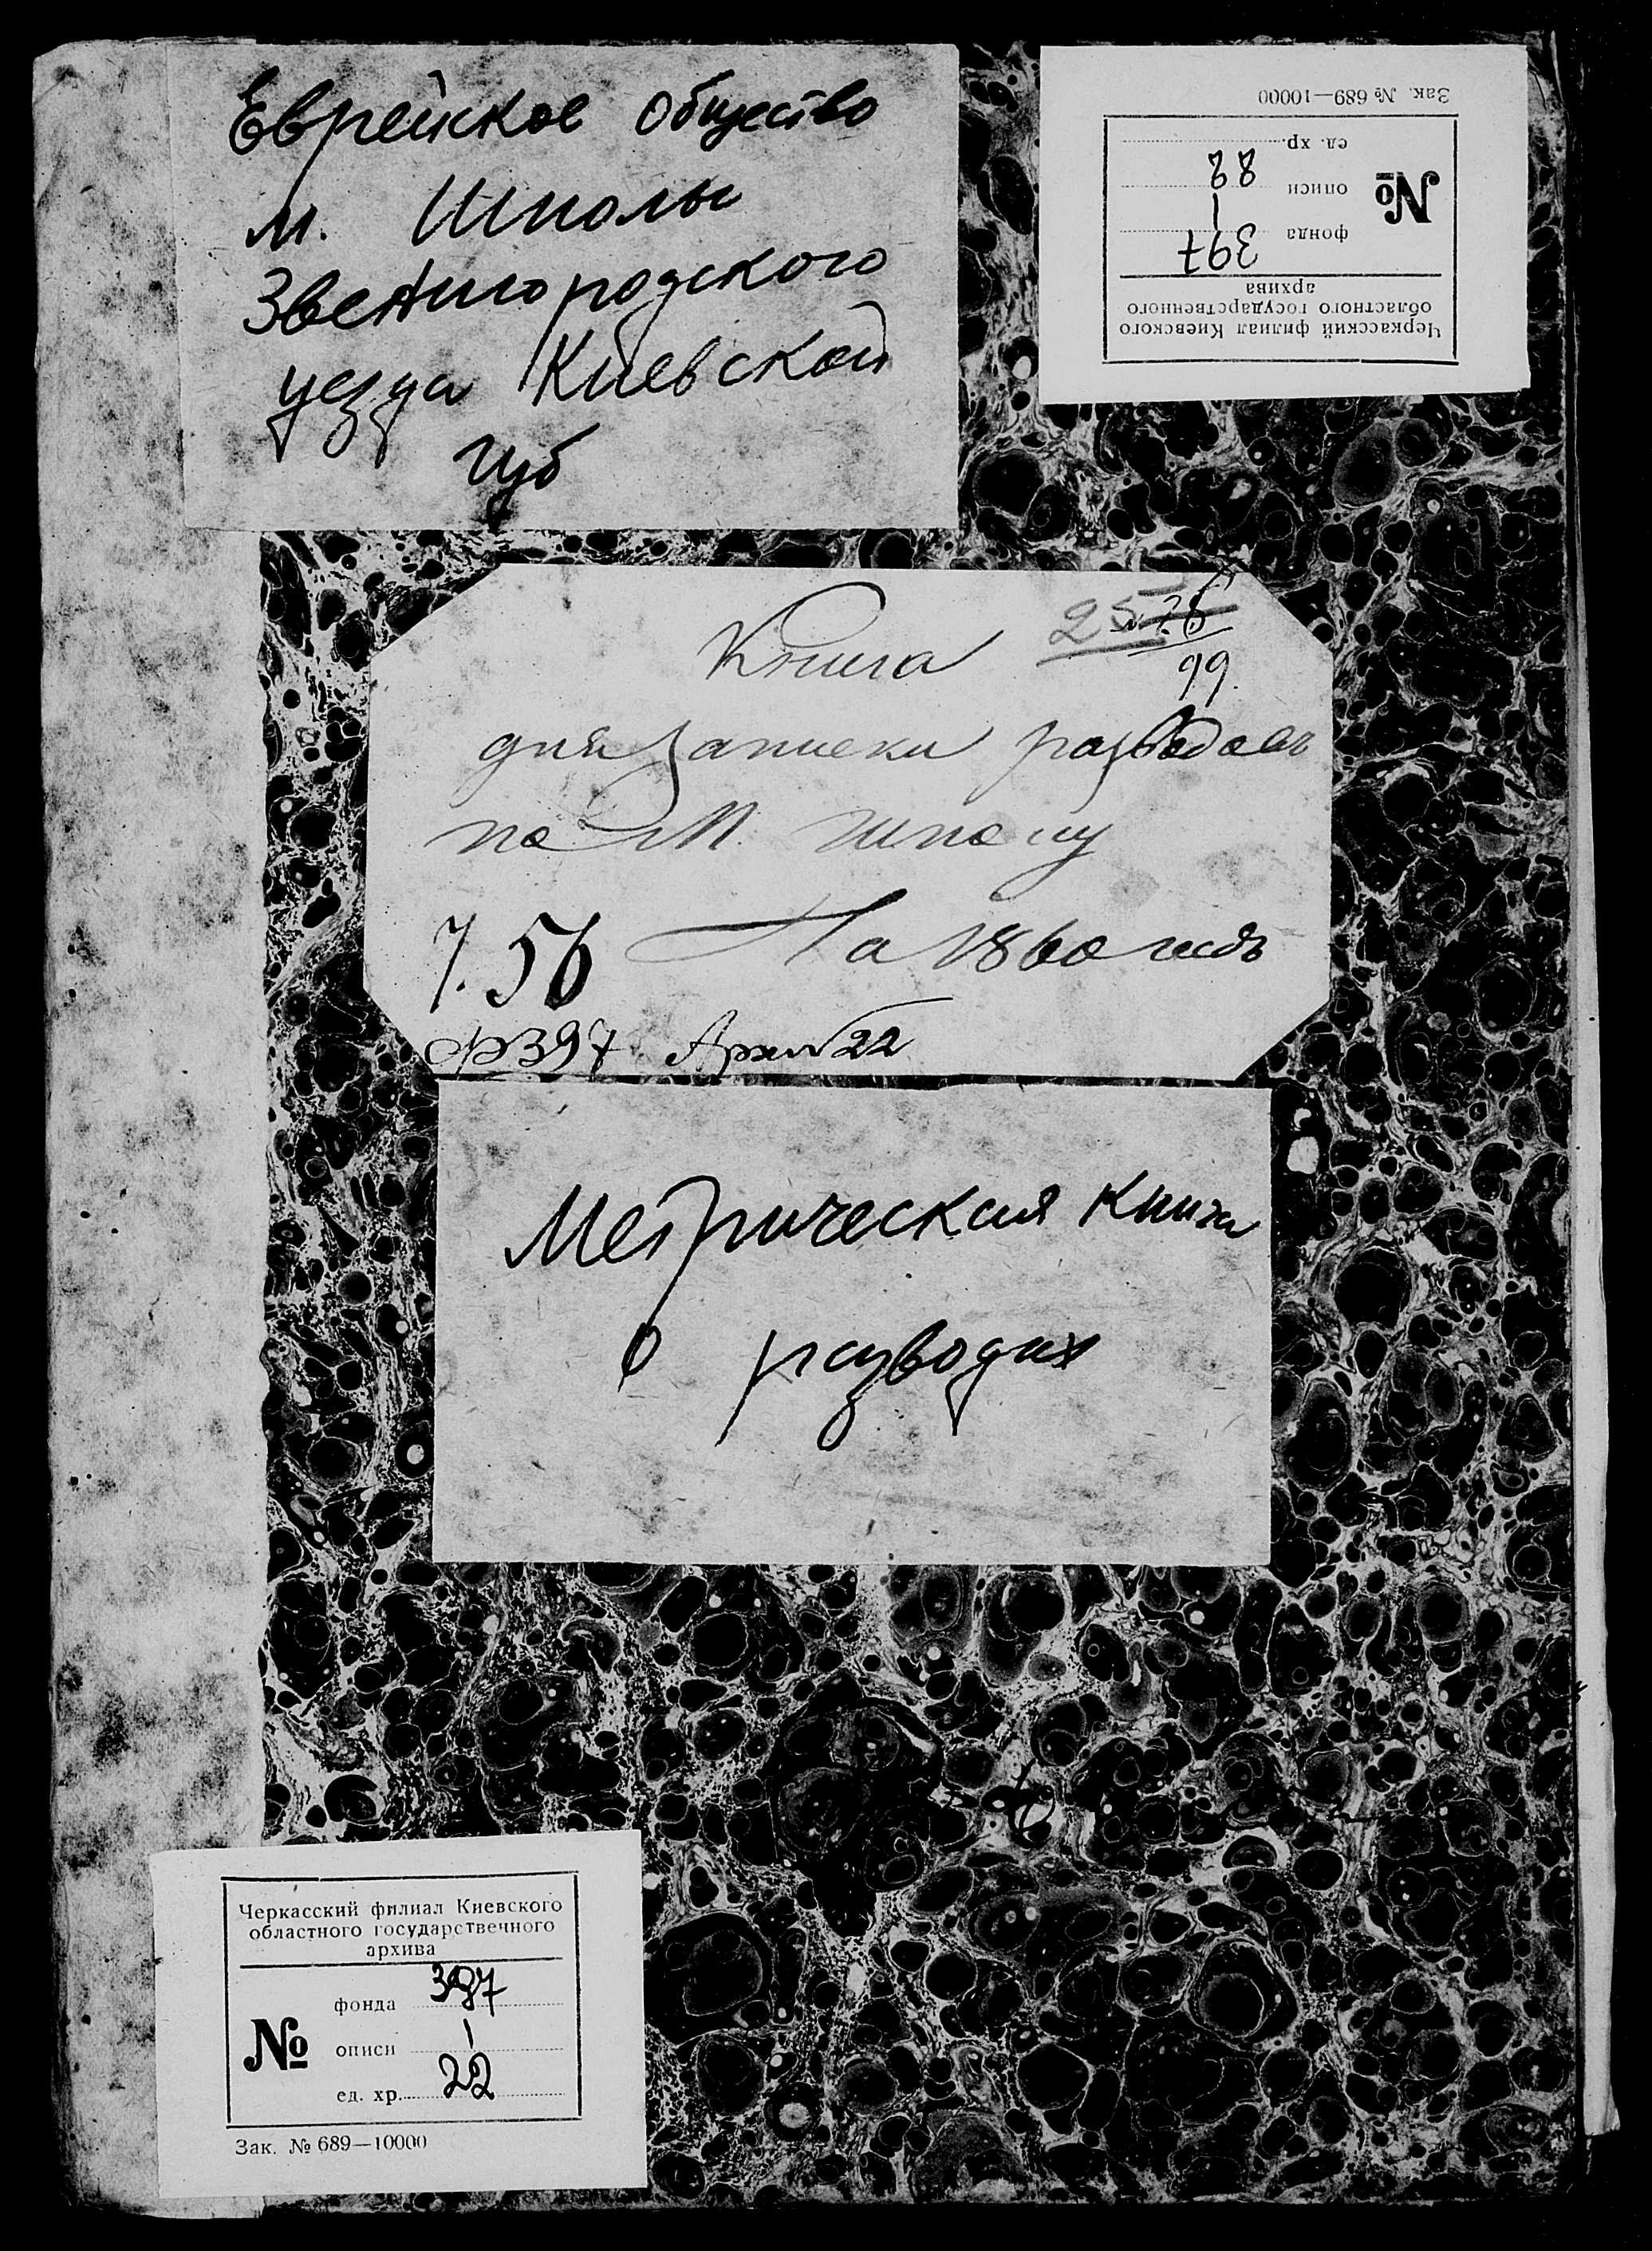 Еврейское общество
м. Шполы
Звенигородского
уезда Киевской
губ
Зак. № 689—10000
Черкасский филиал Киевского
областного государственного
архива
№
фонда 397
описи 1
ед. хр. 22
Книга
25
99.
для записки разводовъ
по М. Шполу
7.56 На 1860 годъ
Ф397 Арх №22
Метрическая книга
о разводах
Черкасский филиал Киевского
областного государственного
архива
№
фонда 397
описи 1
ед. хр. 22
Зак. № 689—10000